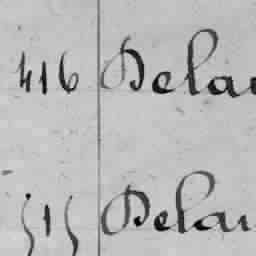 416 Delau
515 Delau